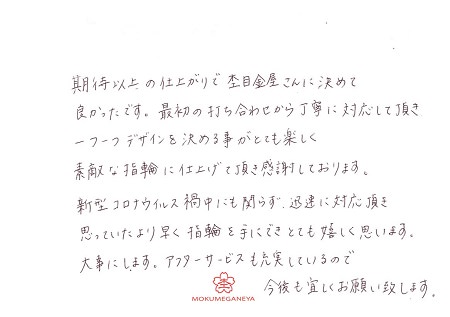 期待以上の仕上がりで杢目金屋さんに決めて
良かったです。最初の打ち合わせから丁寧に対応して頂き
一つ一つデザインを決める事がとても楽しく
素敵な指輪に仕上げて頂き感謝しております。
新型コロナウイルス禍中にも関らず、迅速に対応頂き
思っていたより早く指輪を手にできとても嬉しく思います。
大事にします。アフターサービスも充実しているので
今後も宜しくお願い致します。
杢
MOKUMEGANEYA